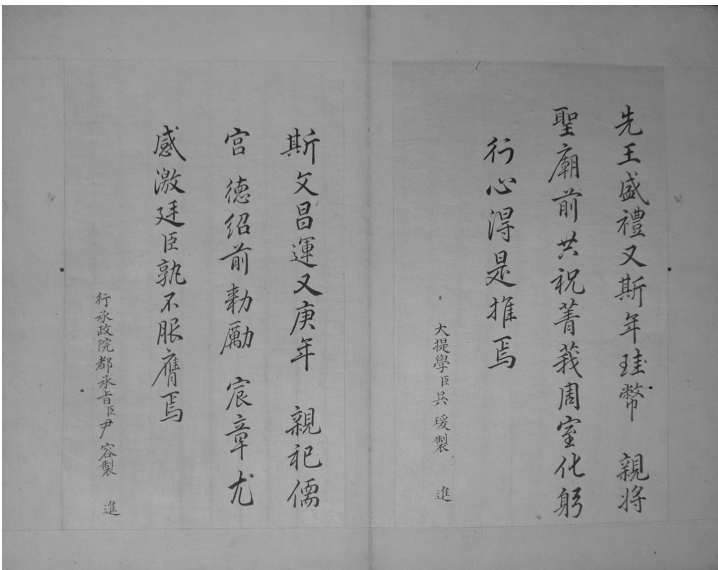 先王盛禮又斯年珪幣 親將
聖廟前共祝菁莪周室化躬
行心淂是推焉
大提學臣吳瑗製 進
斯文昌運又庚年 親祀儒
宮 德紹前勑勵 宸章尤
感激廷臣孰不服膺焉
行承政院都承旨臣尹容製 進